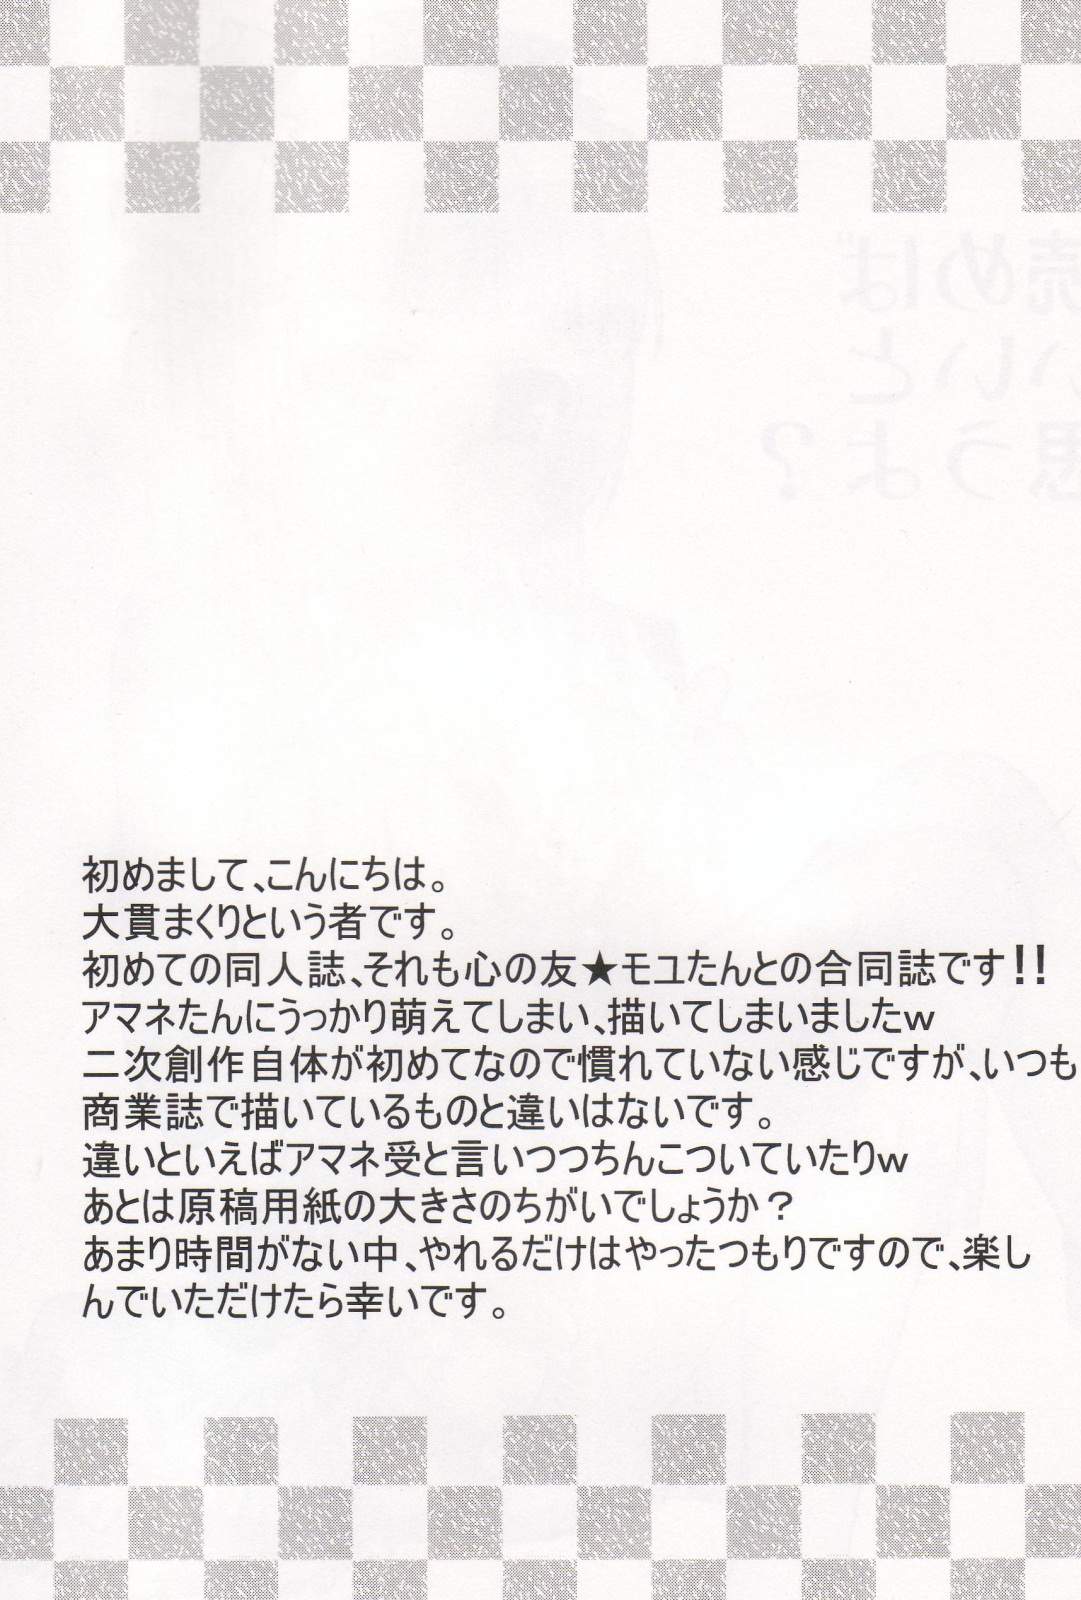 初めまして、こんにちは。
大貫まくりという者です。
初めての同人誌、それも心の友★モユたんとの合同誌です!!
アマネたんにうっかり萌えてしまい、描いてしまいましたｗ
二次創作自体が初めてなので慣れていない感じですが、いつも
商業誌で描いているものと違いはないです。
違いといえばアマネ受と言いつつちんこついていたりｗ
あとは原稿用紙の大きさのちがいでしょうか？
あまり時間がない中、やれるだけはやったつもりですので、楽し
んでいただけたら幸いです。
読めば
いいと
思うよ？